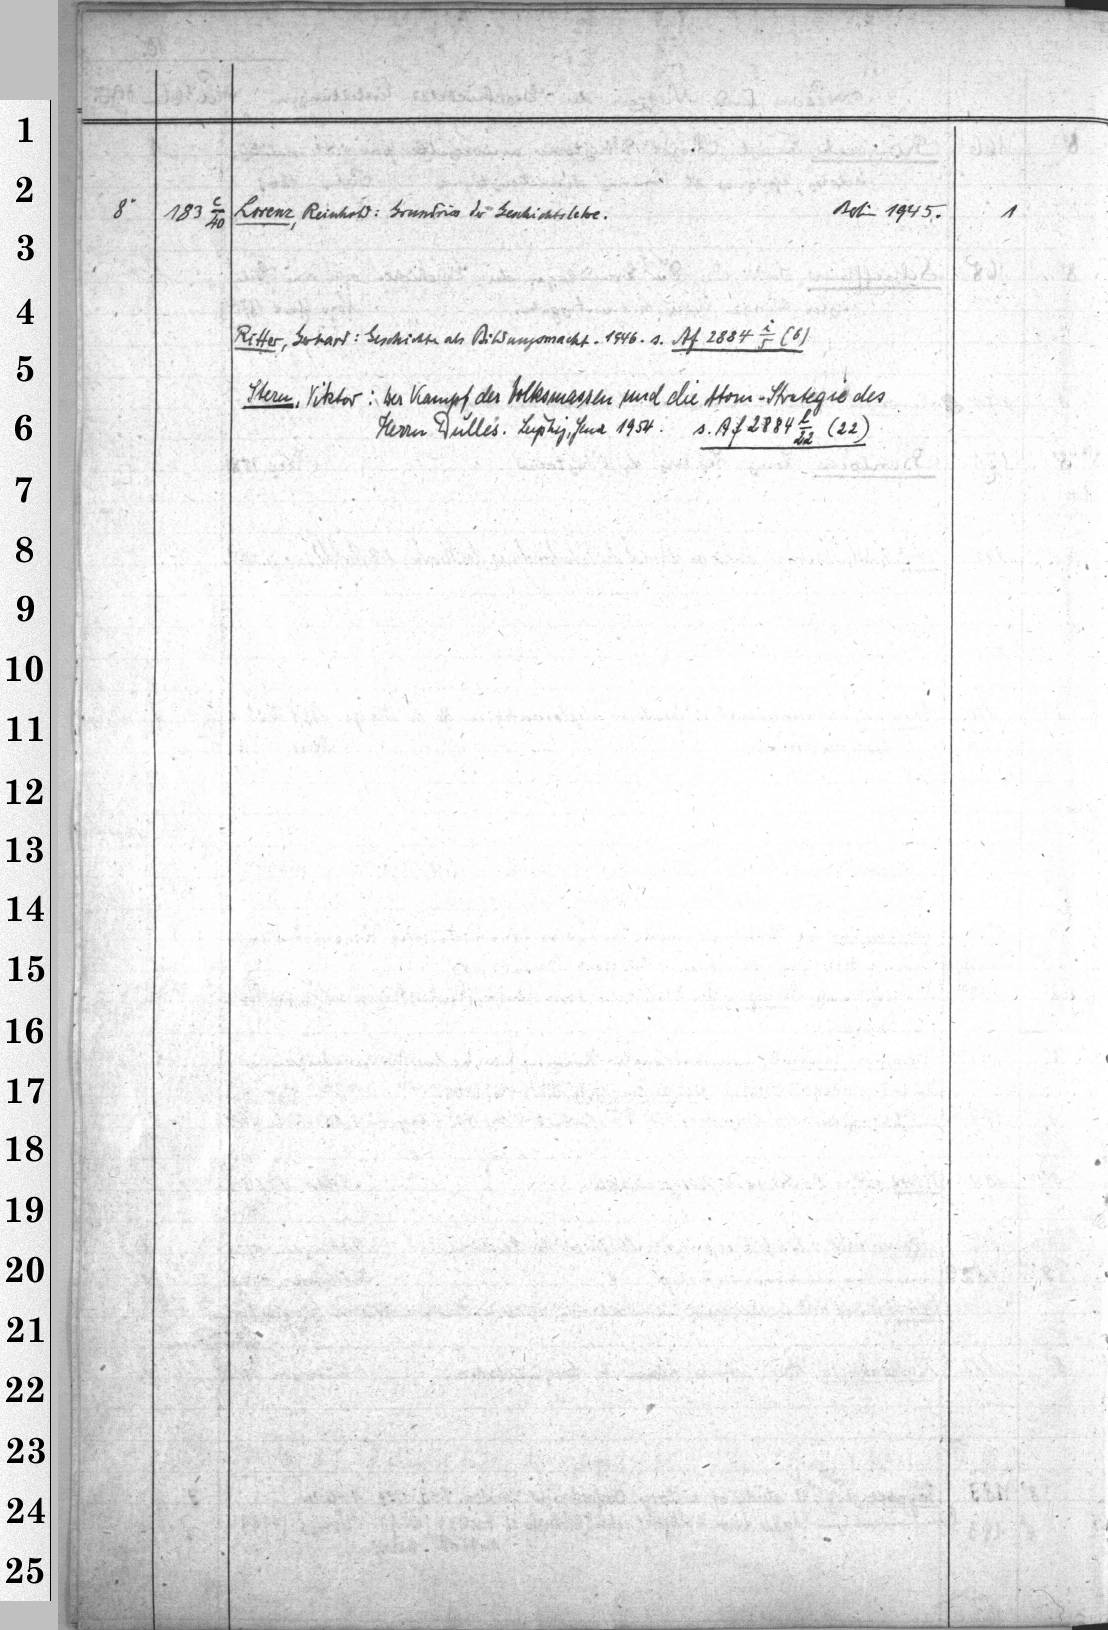 1
2
8° 183 c/40 Lorenz, Reinhold: Grundriss der Geschichtslehre. Berlin 1945. 1
3
4
Ritter, Gerhard: Geschichte als Bildungsmacht. 1946. s. Af 2884 i/5 (6)
5
Stern, Viktor: Der Kampf der Volksmassen und die Atom-Strategie des
6
Herrn Dulles. Leipzig, Jena 1954. s. Af 2884 l/22 (22)
7
8
9
10
11
12
13
14
15
16
17
18
19
20
21
22
23
24
25